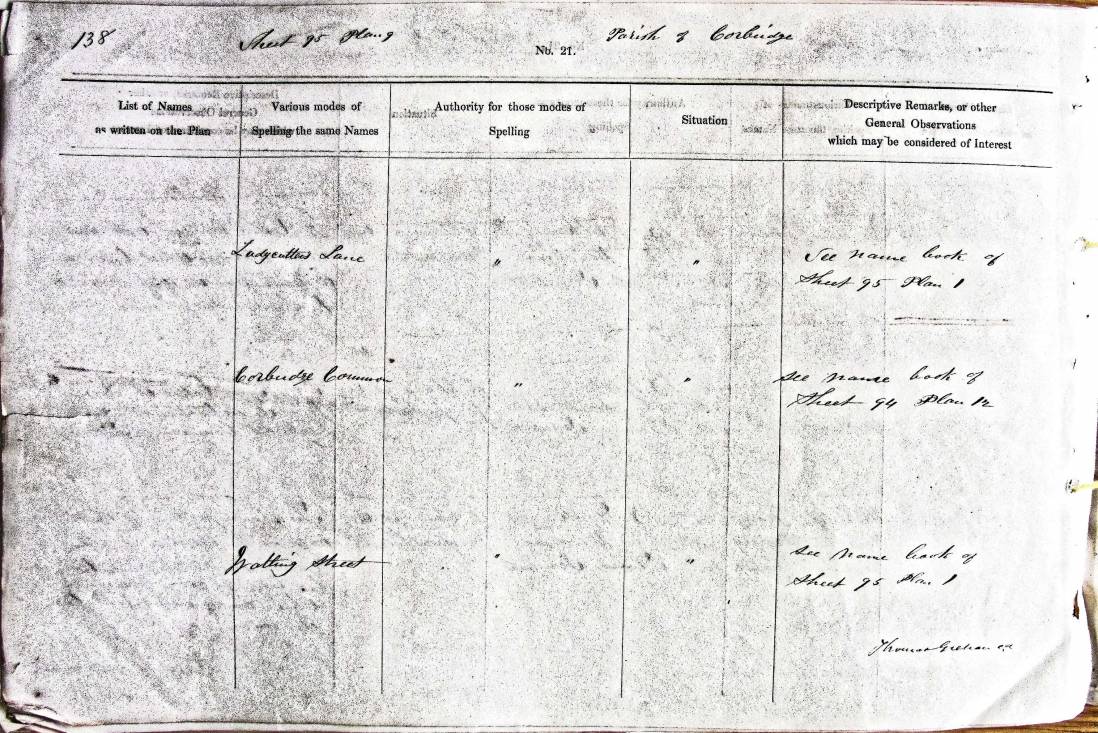 138 Sheet 95 Plan 9 No. 21. Parish of Corbridge
List of Names
as written on the Plan
Various modes of
Spelling the same Names
Authority for those modes of
Spelling
Situation
Descriptive Remarks, or other
General Observations
which may be considered of Interest
Ladycutters Lane " " See name book of
Sheet 95 Plan 1
Corbridge Common " " See name book of
Sheet 94 Plan 12
Watling Street " " See name book of
Sheet 95 Plan 1
Thomas